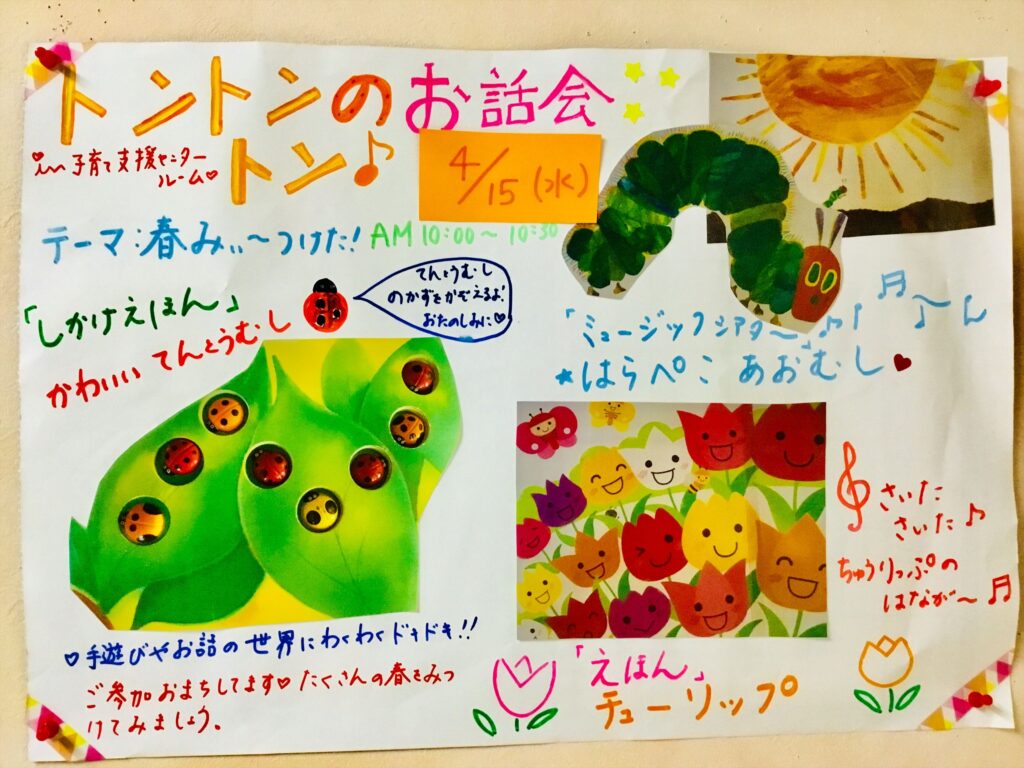 トントンのお話会
トン♪
in 子育て支援センター
ルーム♡
4/15(水)
テーマ:春みぃ〜つけた! AM10:00〜10:30
「しかけえほん」
かわいい てんとうむし
てんとうむし
のかずをかぞえるよ!
おたのしみに♡
「ミュージックシアター」♪
★はらぺこ あおむし♥
さいた
さいた♪
ちゅうりっぷの
はなが〜♬
♡手遊びやお話の世界にわくわくドキドキ!!
ご参加おまちしてます♡たくさんの春をみつ
けてみましょう。
「えほん」
チューリップ